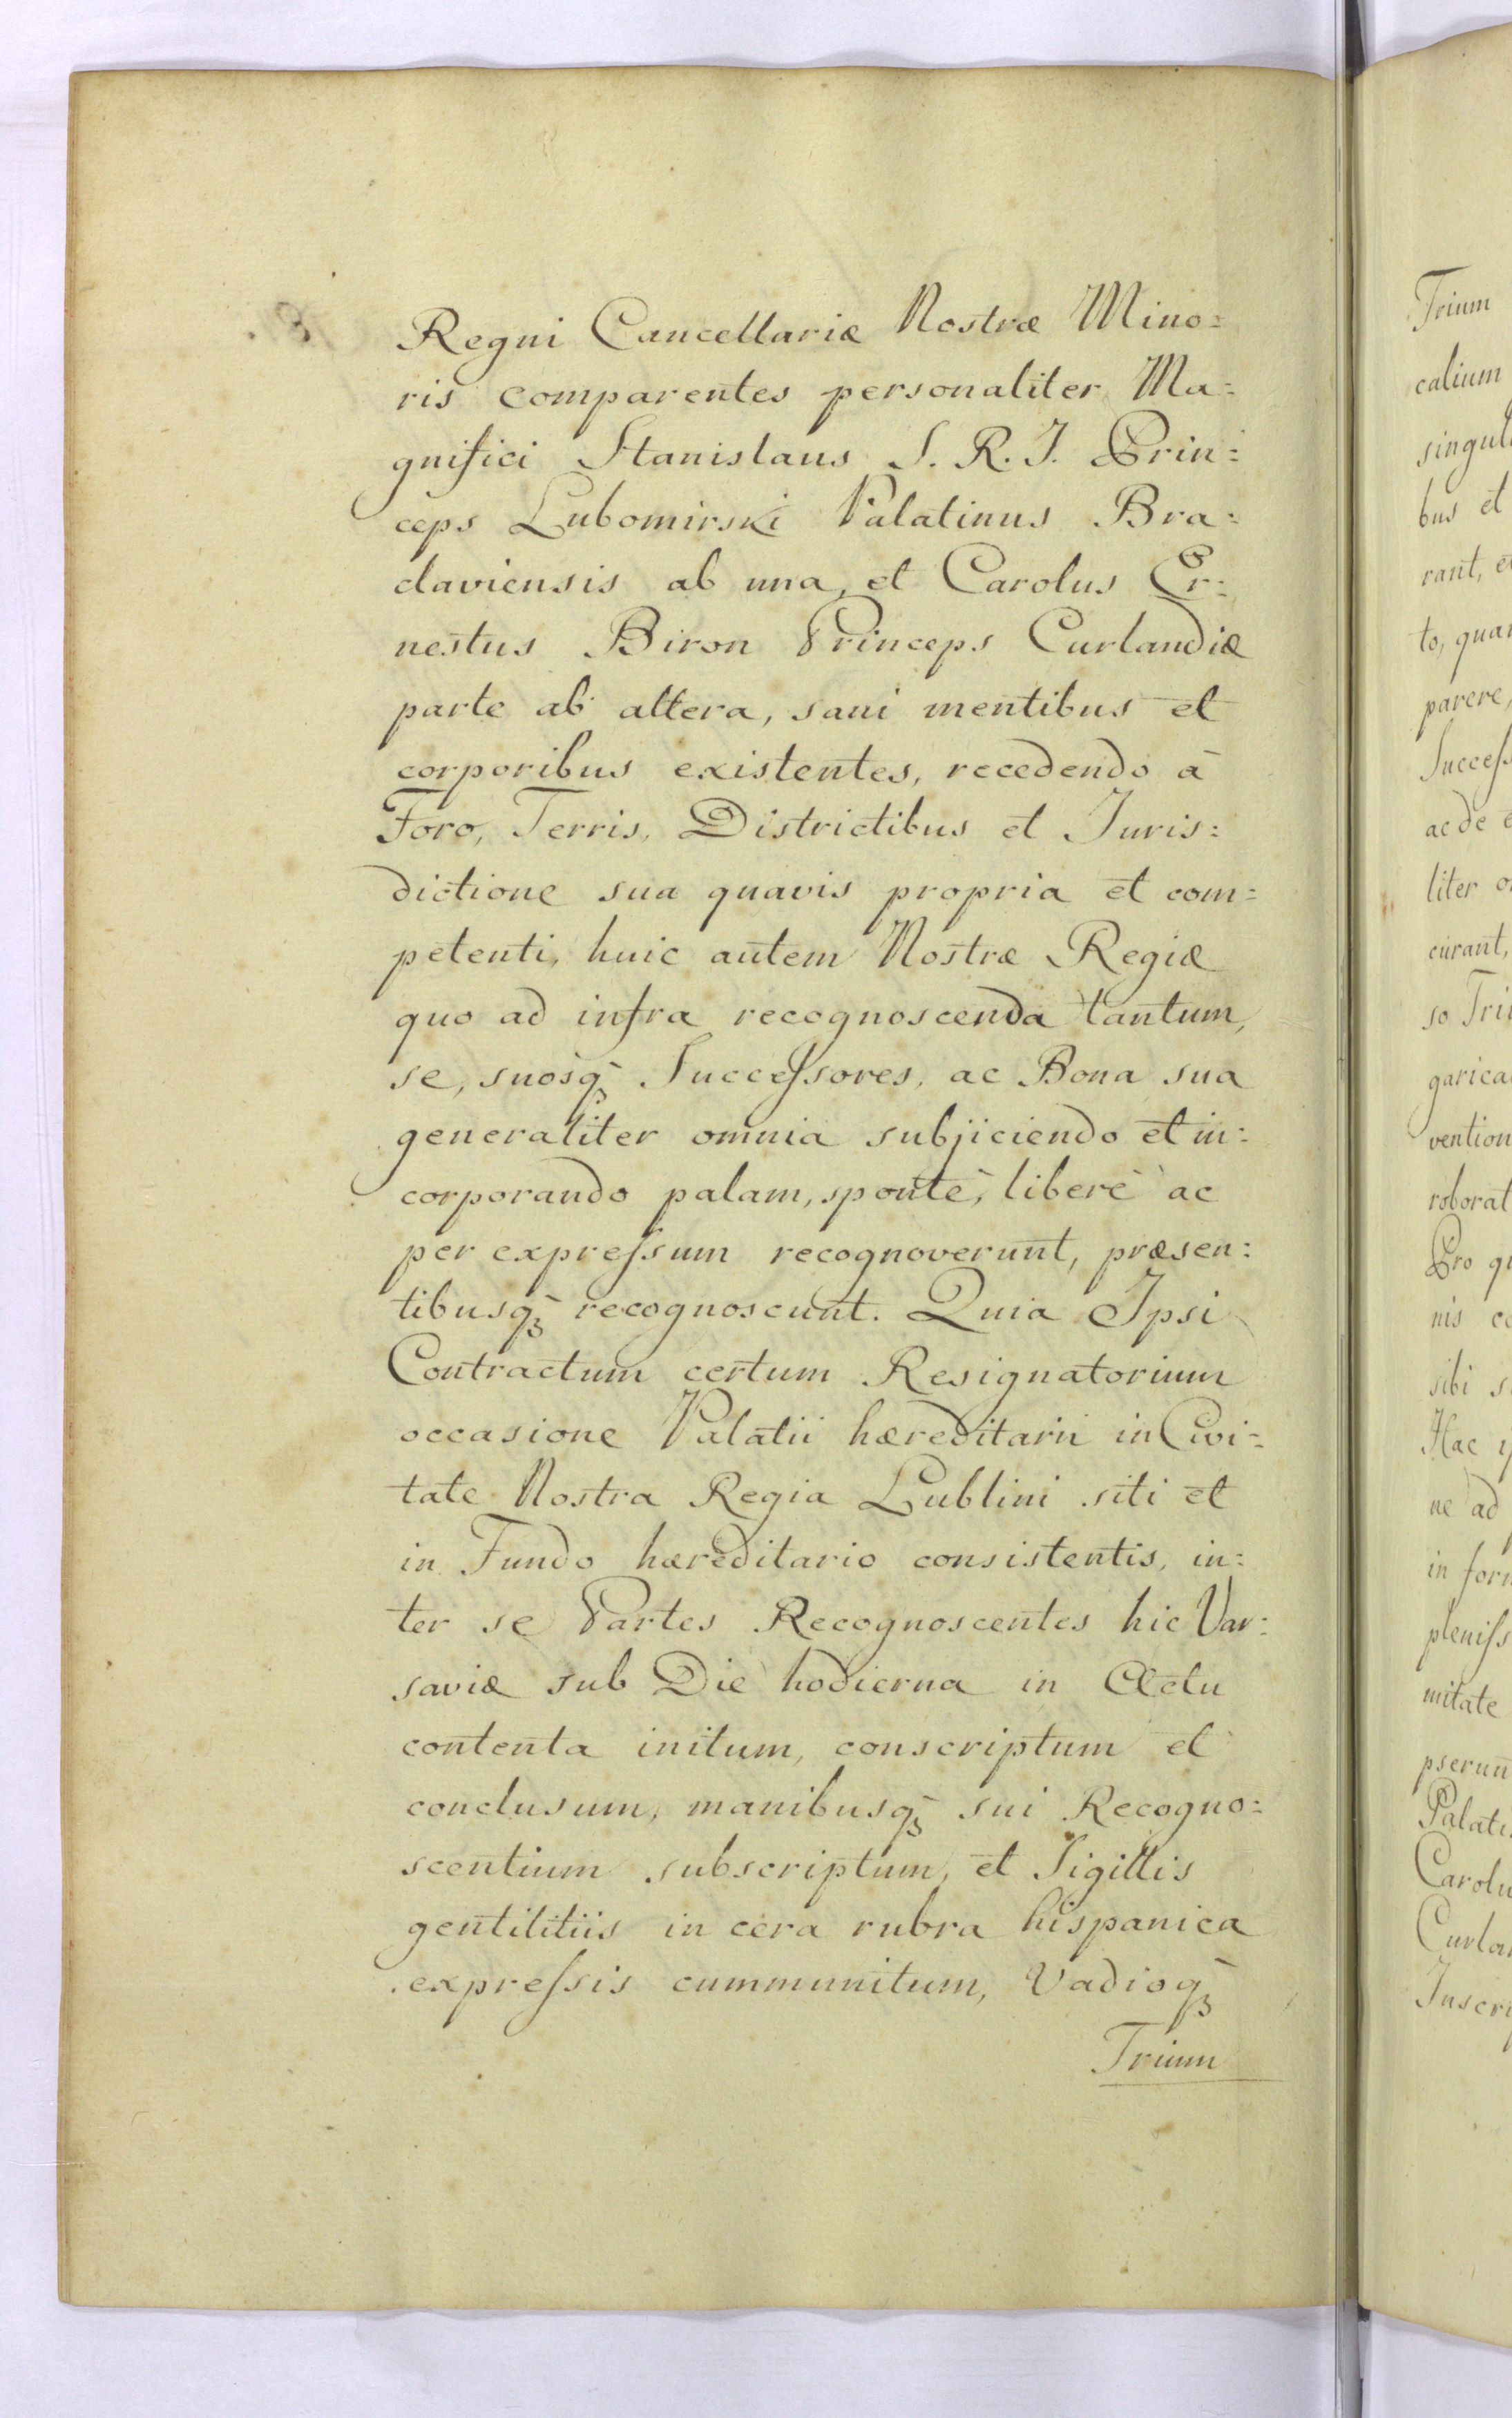 Regni Cancellariæ Nostræ Mino=
ris comparentes personaliter Ma=
gnifici Stanislaus S. R. I. Prin=
ceps Lubomirski Palatinus Bra=
claviensis ab una, et Carolus Er=
nestus Biron Princeps Curlandiæ
parte ab altera, sani mentibus et
corporibus existentes, recedendo à
Foro, Terris, Districtibus et Juris=
dictione sua quavis propria et com=
petenti, huic autem Nostræ Regiæ
quo ad infra recognoscenda tantum,
se, suosq̃ Succeſsores, ac Bona sua
generaliter omnia subjiciendo et in=
corporando palam, spontè, liberè ac
per expreſsum recognoverunt, præsen=
tibusq̃ recognoscunt. Quia Ipsi
Contractum certum Resignatorium
occasione Palatii hæreditarii in Civi=
tate Nostra Regia Lublini siti et
in Fundo hæreditario consistentis, in=
ter se Partes Recognoscentes hic Var=
saviæ sub Die hodierna in Actu
contenta initum, conscriptum et
conclusum, manibusq̃ sui Recogno=
scentium subscriptum, et Sigillis
gentilitiis in cera rubra hispanica
expreſsis cummunitum, Vadioq̃
Trium
Trium
calium
singul
bus et
rant, e
to, quan
parere,
Succeſs
ac de e
liter o
curant,
so Tri
garica
vention
roborat
Pro q
nis c
sibi s
Hac
ne ad
in for
pleniſs
mitate
pserun
Palati
Carolu
Curlan
Inscri